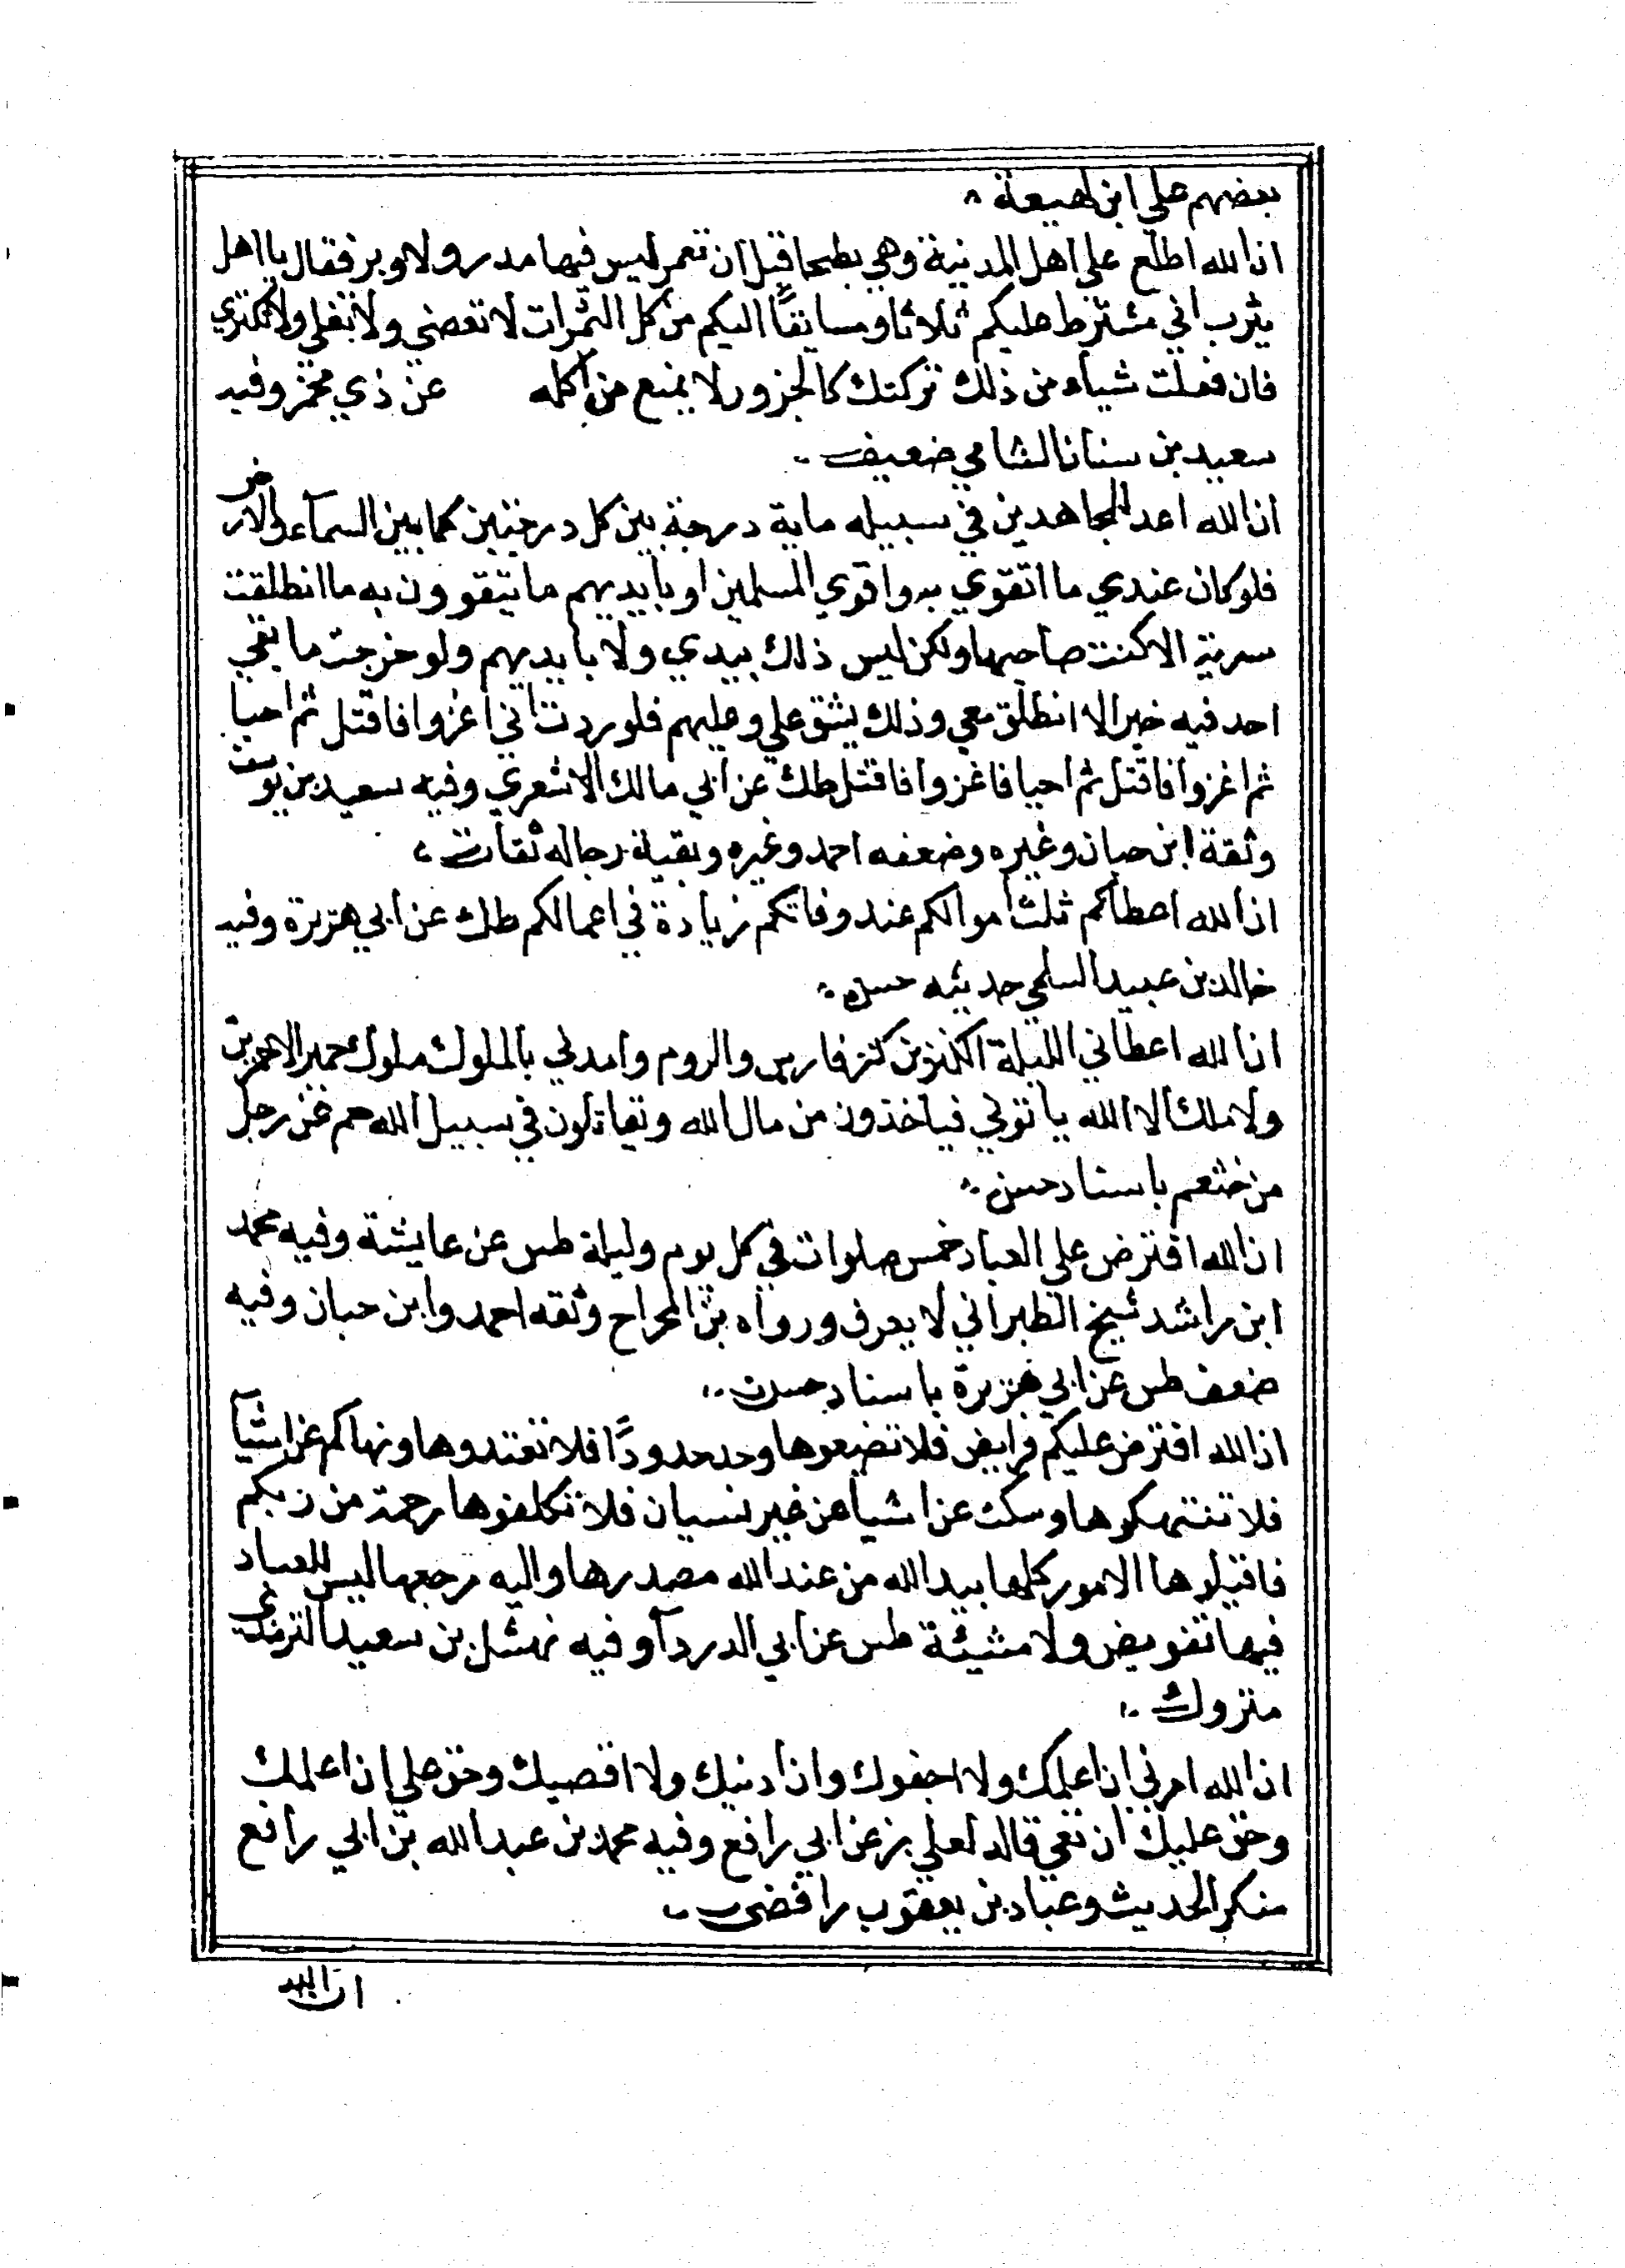 بعضهم علي ابن لهيعة
ان الله اطلع علي اهل المدينة وهي بطحا قبل ان تعمر ليس فيها مدر ولا وبر فقال يا اهل
يثرب اني مشترط عليكم ثلاثا وسايقا اليكم من كل الثمرات لا تعصي ولا تغلي ولا تكتري
فان فعلت شياء من ذلك تركتك كالجزور لا يمنع من اكله عن ذي مخمر وفيه
سعيد بن سنان الشامي ضعيف
ان الله اعد للمجاهدين في سبيله ماية درجة بين كل درجتين كما بين السماء والارض
فلو كان عندي ما اتقوي به واقوي المسلمين او بايديهم ما يتقوون به ما انطلقت
سرية الا كنت صاحبها ولكن ليس ذلك بيدي ولا بايديهم ولو خرجت ما بقي
احد فيه خير الا انطلق معي وذلك يشق علي وعليهم فلوردت اني اغزوا فاقتل ثم احيا
ثم اغزوا فاقتل ثم احيا فاغزوا فاقتل طك عن ابي مالك الاشعري وفيه سعيد بن يوسف
وثقة ابن حبان وغيره وضعفه احمد وغيره وبقية رجاله ثقات
ان الله اعطاكم ثلث اموالكم عند وفاتكم زيادة في اعمالكم طك عن ابي هريرة وفيه
خالد بن عبيد السلمي حديثه حسن
ان الله اعطاني الليلة الكنزين كنز فارس والروم وامدني بالملوك ملوك حمير الاحمرين
ولا ملك الا الله ياتوني فياخذون من مال الله ويقاتلون في سبيل الله حم عن رجل
من خثعم باسناد حسن
ان الله افترض علي العباد خمس صلوات في كل يوم وليلة طس عن عايشة وفيه محمد
ابن راشد شيخ الطبراني لا يعرف ورواه بن الجراح وثقه احمد وابن حبان وفيه
ضعف طس عن ابي هريرة باسناد حسن
ان الله افترض عليكم فرايض فلا تضيعوها وحد حدودا فلا تعتدوها ونهاكم عن اشيآ
فلا تنتهكوها وسكت عن اشيا من غير نسيان فلا تكلفوها رحمة من ربكم
فاقبلوها الامور كلها بيد الله من عند الله مصدرها واليه مرجعها ليس للعباد
فيها تفويض ولا مشيئة طس عن ابي الدردآ وفيه نهشل بن سعيد الترمذي
متروك
ان الله امرني ان اعلمك ولا اجفوك وان ادنيك ولا اقصيك وحق علي ان اعلمك
وحق عليك ان تعي قاله لعلي بز عن ابي رافع وفيه محمد بن عبد الله بن ابي رافع
منكر الحديث وعباد بن يعقوب رافضي
ان الله